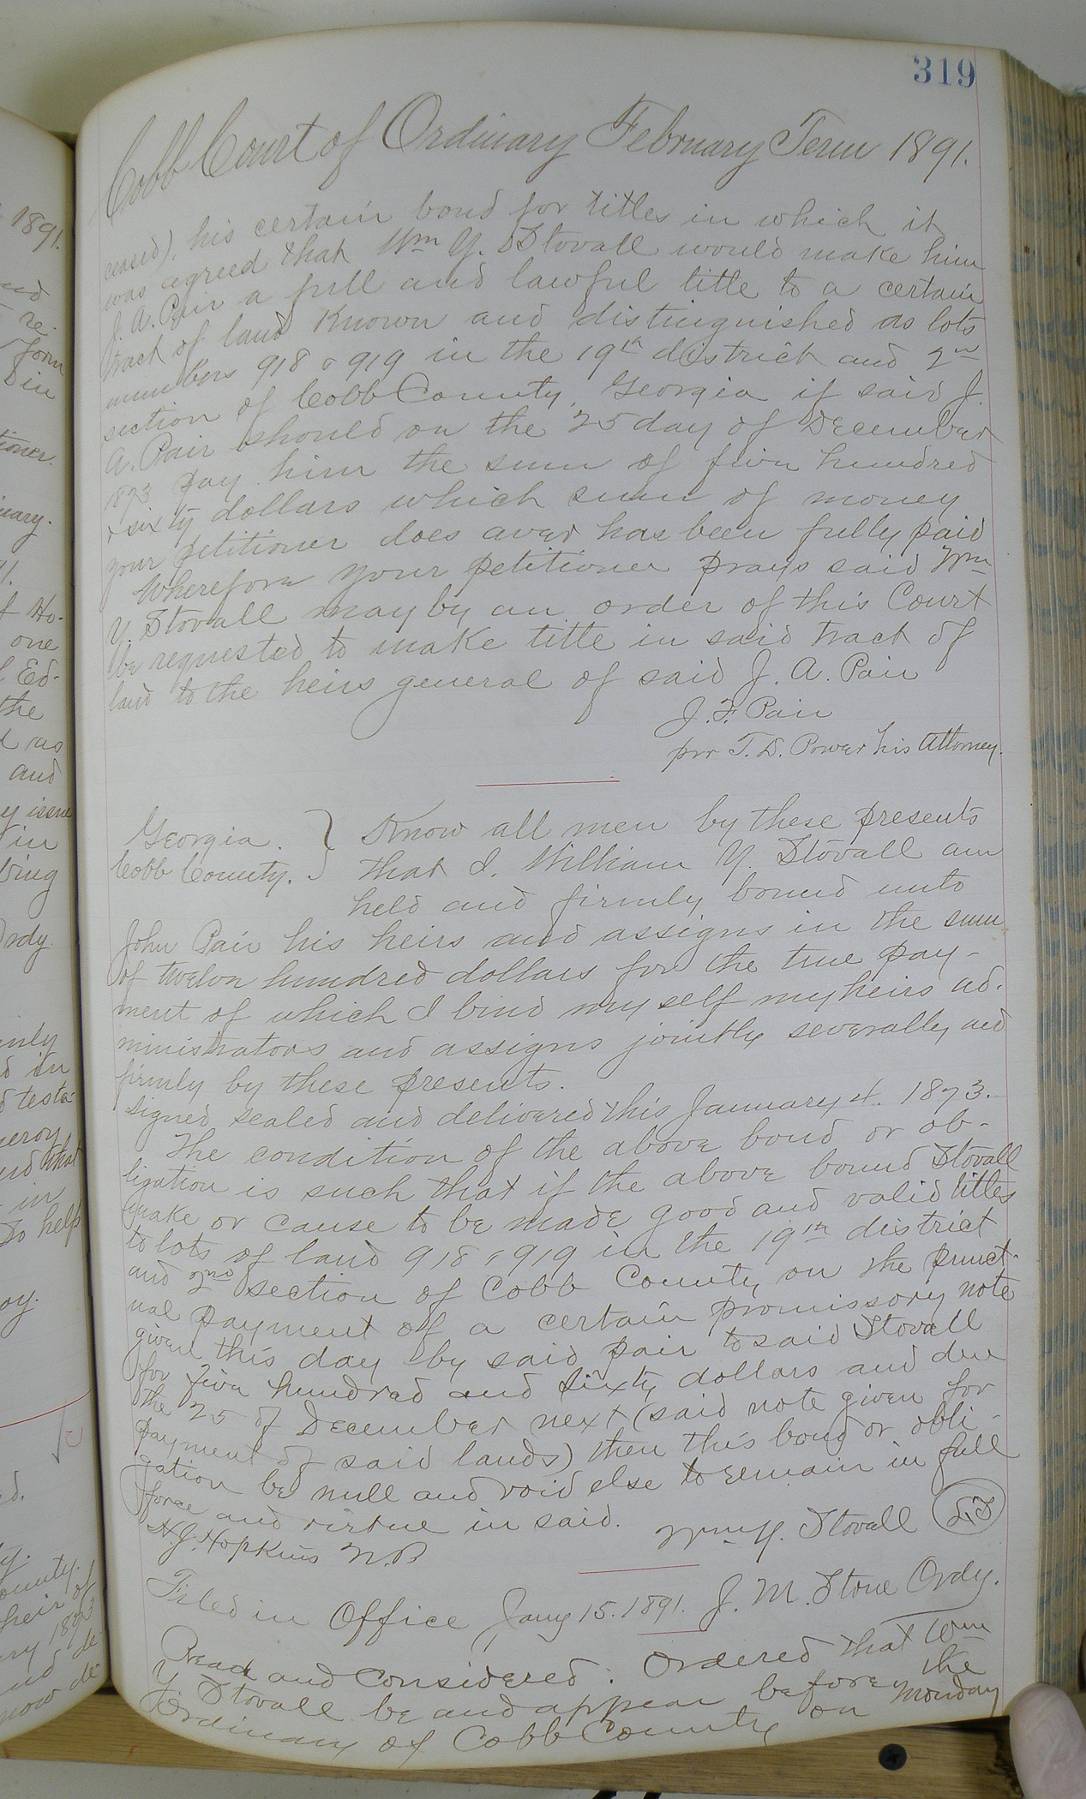 319
Cobb Court of Ordinary February Term 1891.
ceased), his certain bond for titles in which it
was agreed that Wm Y. Stovall would make him
J. A. Pair a full and lawful title to a certain
tract of land known and distinguished as lots
numbers 918 & 919 in the 19th district and 2nd
section of Cobb County, Georgia if said J.
A. Pair should on the 25 day of December
1873 pay him the sum of five hundred
& sixty dollars which sum of money
your petitioner does aver has been fully paid
Wherefore your petitioner prays said Wm
Y. Stovall may by an order of this Court
be requested to make title in said tract of
land to the heirs general of said J. A. Pair
J. F. Pair
per T. D. Power his Attorney.
Georgia. } Know all men by these presents
Cobb County. } that I, William Y. Stovall am
held and firmly bound unto
John Pair his heirs and assigns in the sum
of twelve hundred dollars for the true pay-
ment of which I bind my self my heirs ad-
ministrators and assigns jointly severally and
firmly by these presents.
signed sealed and delivered this January 4. 1873.
The condition of the above bond or ob-
ligation is such that if the above bound Stovall
make or cause to be made good and valid titles
to lots of land 918 & 919 in the 19th district
and 2nd section of Cobb County, on the punct-
ual payment of a certain promissory note
given this day by said pair to said Stovall
for five hundred and sixty dollars and due
the 25 of December next (said note given for
payment of said lands) then this bond or obli-
gation be null and void else to remain in full
force and virtue in said.
Wm Y. Stovall LS
N. J. Hopkins N.P.
Filed in Office Jany 15. 1891. J. M. Stone Ordy.
Read and Considered: Ordered that Wm
Y. Stovall be and appear before the
Ordinary of Cobb County on Monday
1891.
and
re-
form
in
tioner.
inary.
1.
f Ho-
one
Ed-
the
d as
and
y issue
in
bing
Ordy.
only
d in
d testa-
eroy
nd that
in
So help
oy.
ed.
ounty.
heir of
ry 1873
and de-
now de-